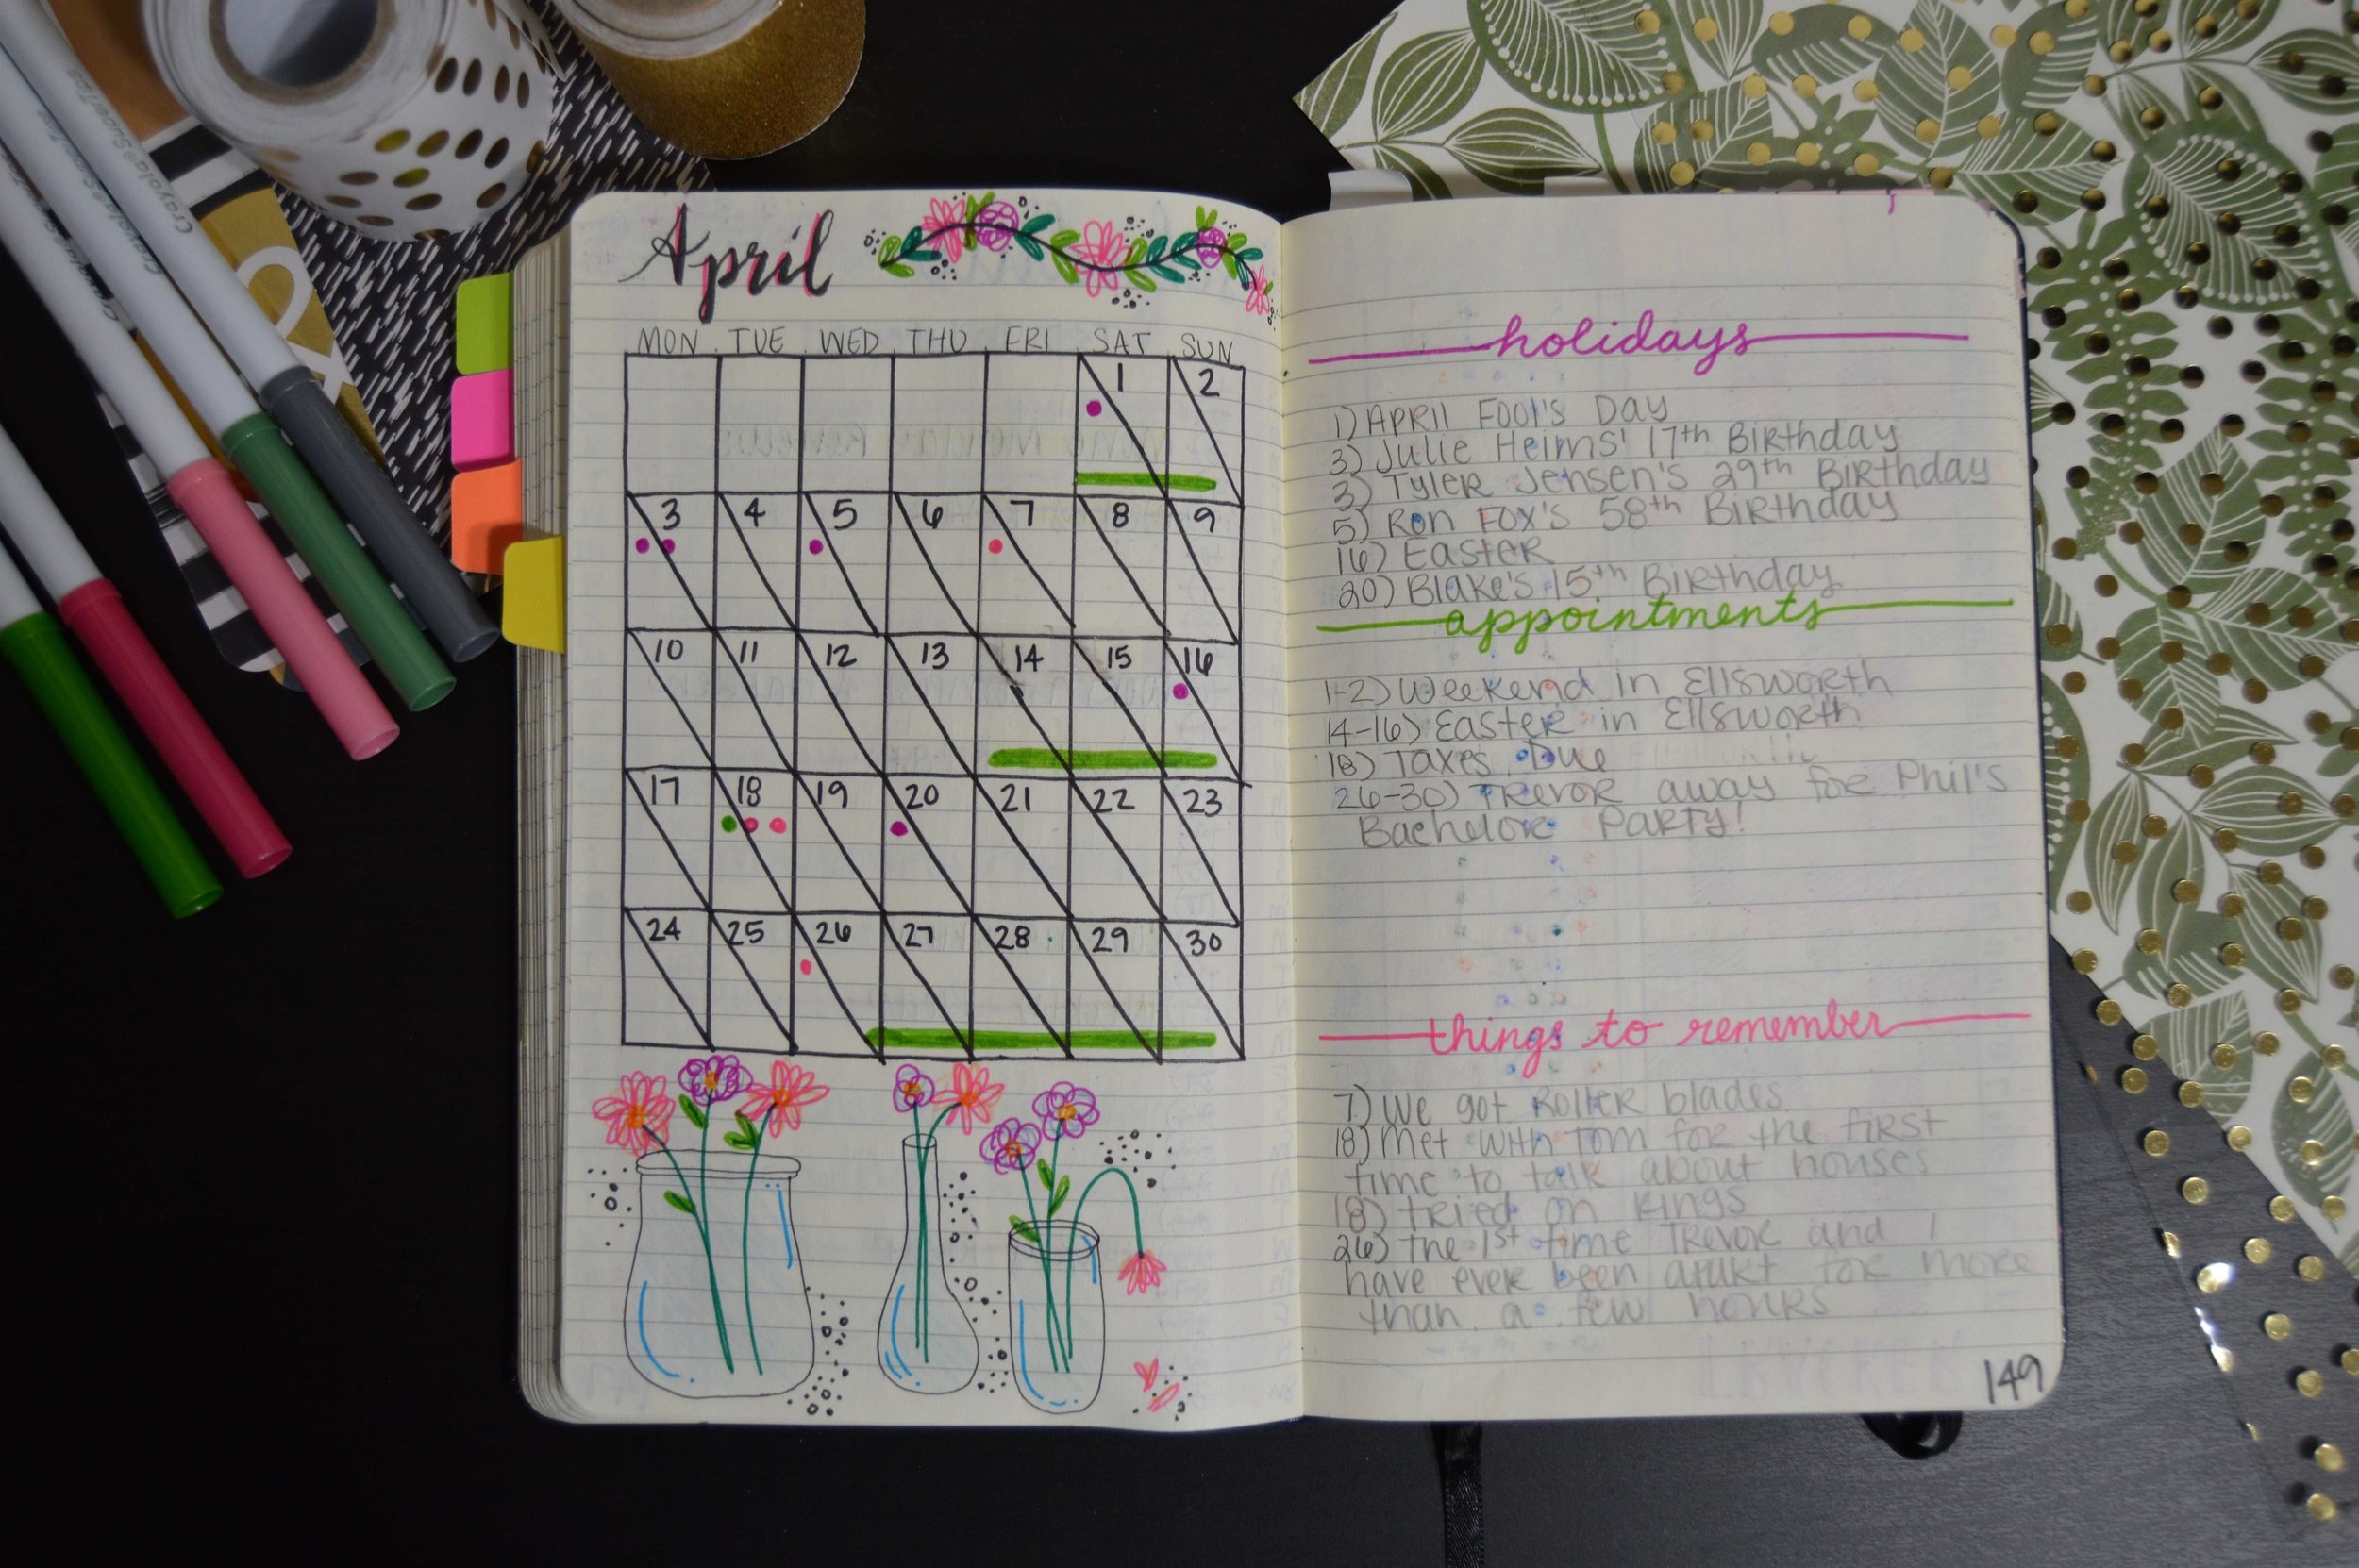 Crayola SuperTips
Crayola SuperTips
April
MON TUE WED THU FRI SAT SUN
1 2
3 4 5 6 7 8 9
10 11 12 13 14 15 16
17 18 19 20 21 22 23
24 25 26 27 28 29 30
holidays
1) APRIL FOOL'S DAY
3) Julie Heims' 17th Birthday
3) Tyler Jensen's 29th Birthday
5) Ron Fox's 58th Birthday
16) Easter
20) Blake's 15th Birthday
appointments
1-2) Weekend in Ellsworth
14-16) Easter in Ellsworth
18) Taxes Due
26-30) Trevor away for Phil's
Bachelor Party!
things to remember
7) We got Roller blades
18) Met with Tom for the first
time to talk about houses
18) tried on Rings
26) the 1st time Trevor and I
have ever been apart for more
than a few hours
149